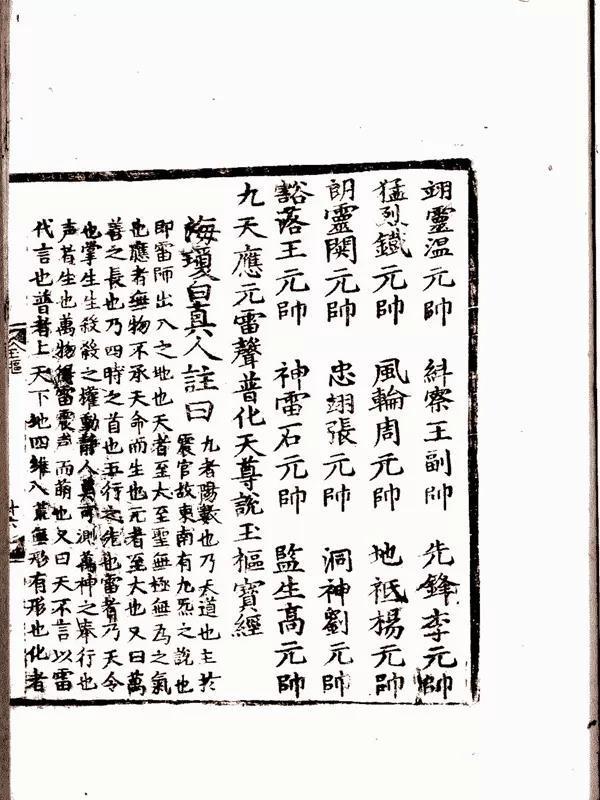 翊靈温元帥 糾察王副帥 先鋒李元帥
猛烈鐵元帥 風輪周元帥 地祇楊元帥
朗靈関元帥 忠翊張元帥 洞神劉元帥
豁落王元帥 神雷石元帥 監生高元帥
九天應元雷聲普化天尊說玉樞寶經
海瓊白真人註曰 九者陽數也乃天道也主於
震宫故東南有九炁之說也
即雷師出入之地也天者至大至聖無極無為之氣
也應者無物不承天命而生也元者至大也又曰萬
善之長也乃四時之首也五行之先也雷者乃天令
也掌生生殺殺之權動靜人莫可測萬神之奉行也
声者生也萬物得雷震声而萌也又曰天不言以雷
代言也普者上天下地四維八荒無形有形也化者
玉樞
十六